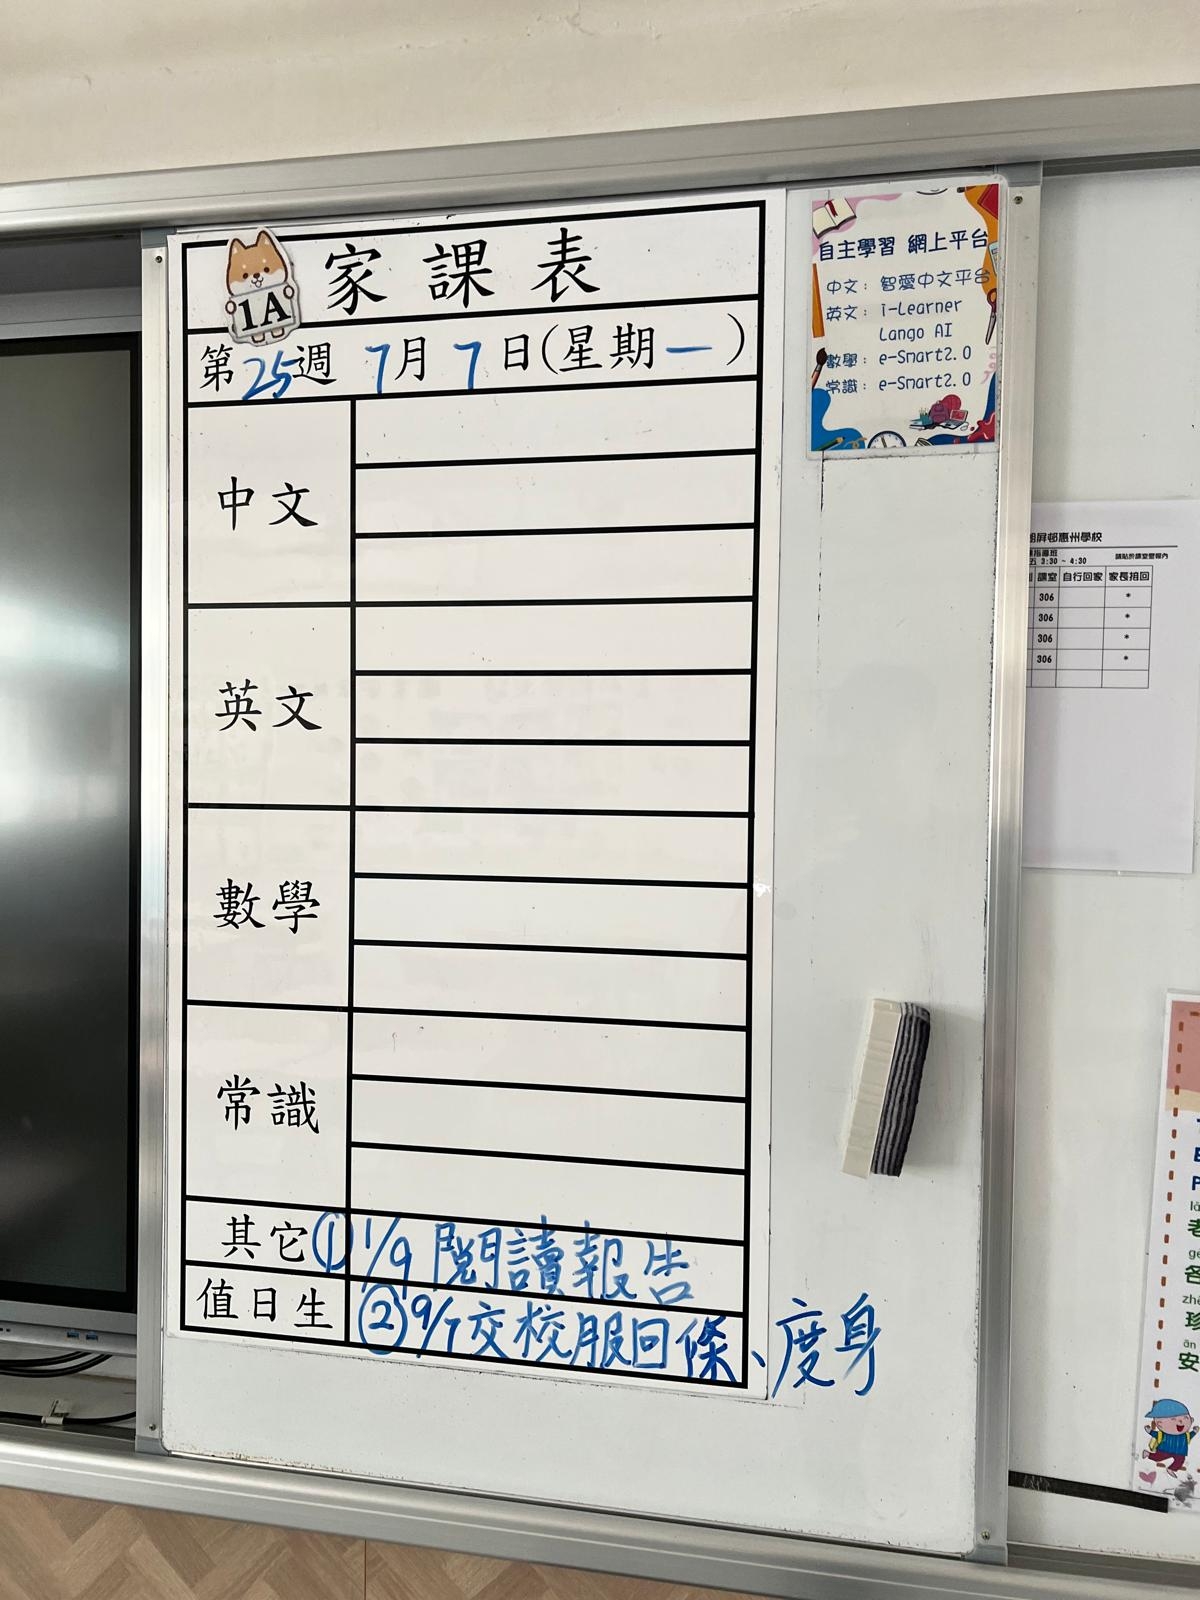 1A
家課表
第25週 7月7日(星期一)
中文
英文
數學
常識
其它 ① 1/9 閱讀報告
值日生 ② 9/7 交校服回條、度身
自主學習 網上平台
中文：智愛中文平台
英文：i-Learner
Lango AI
數學：e-Smart2.0
常識：e-Smart2.0
屏邨惠州學校
指導班
五 3:30 ~ 4:30
課室 自行回家 家長接回
306 *
306 *
306 *
306 *
老
珍
安